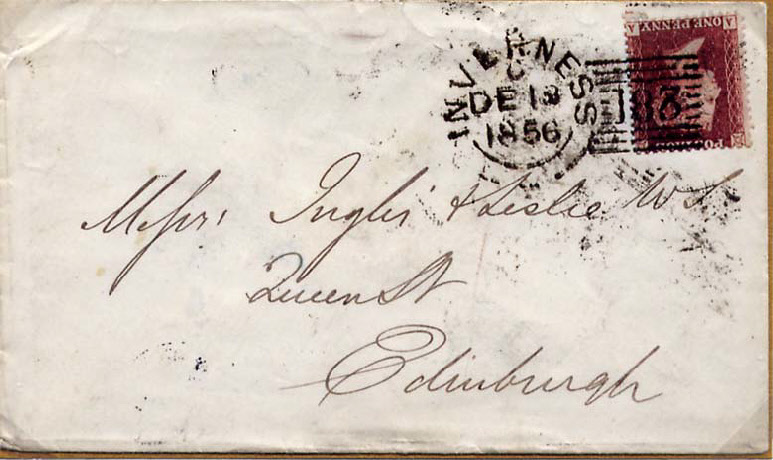 INVERNESS
C
DE 18
1856
ONE PENNY
A A
Messrs Inglis & Leslie W.S.
Queen St
Edinburgh